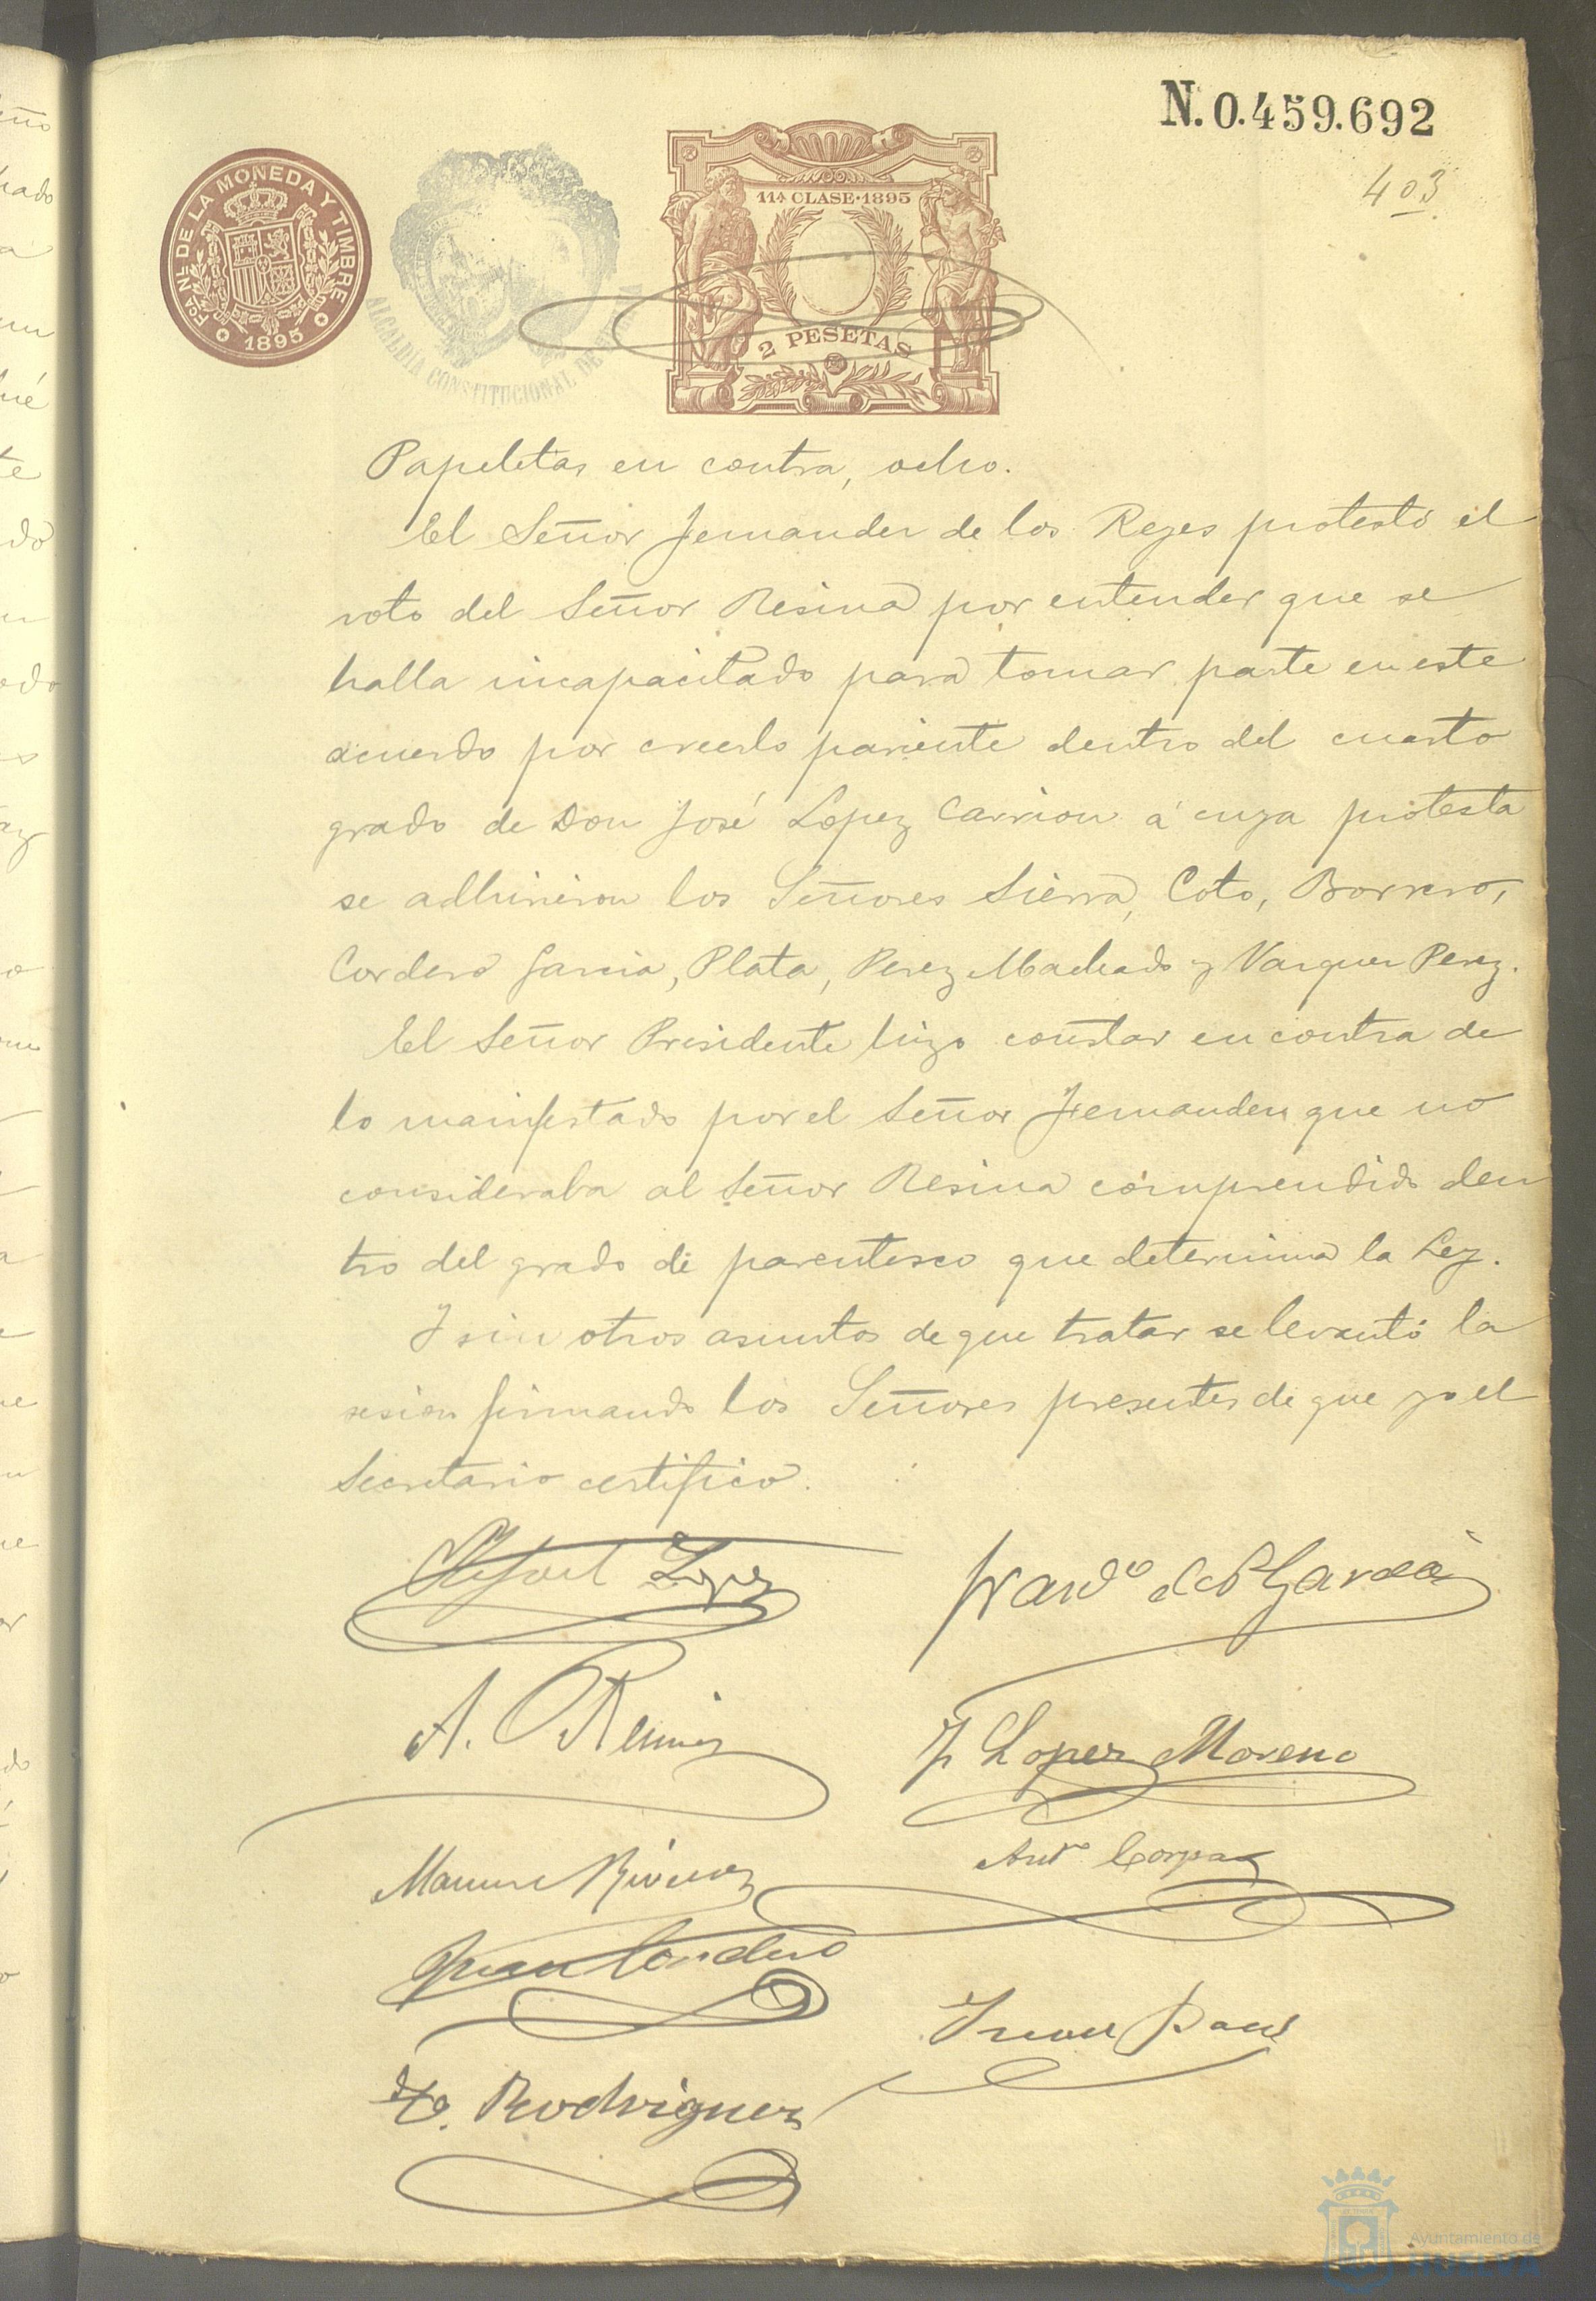 N. 0.459.692
403
FCA. NL. DE LA MONEDA Y TIMBRE
1895
ALCALDÍA CONSTITUCIONAL DE
11ª CLASE·1895
2 PESETAS
Papeletas en contra, ocho.
El Señor Fernandez de los Reyes protestó el
voto del Señor Resina por entender que se
halla incapacitado para tomar parte en este
acuerdo por creerlo pariente dentro del cuarto
grado de Don José Lopez Carrion á cuya protesta
se adhirieron los Señores Sierra, Coto, Borrero,
Cordero Garcia, Plata, Perez Machado y Vazquez Perez.
El Señor Presidente hizo constar en contra de
lo manifestado por el Señor Fernandez que no
consideraba al Señor Resina comprendido den
tro del grado de parentesco que determina la Ley.
Y sin otros asuntos de que tratar se levantó la
sesion firmando los Señores presentes de que yo el
Secretario certifico.
Rafael Lopez
Garcia
A. Resina
J Lopez Moreno
Manuel
Antº Corpas
Juan Cordero
Rodriguez
Ayuntamiento de
HUELVA